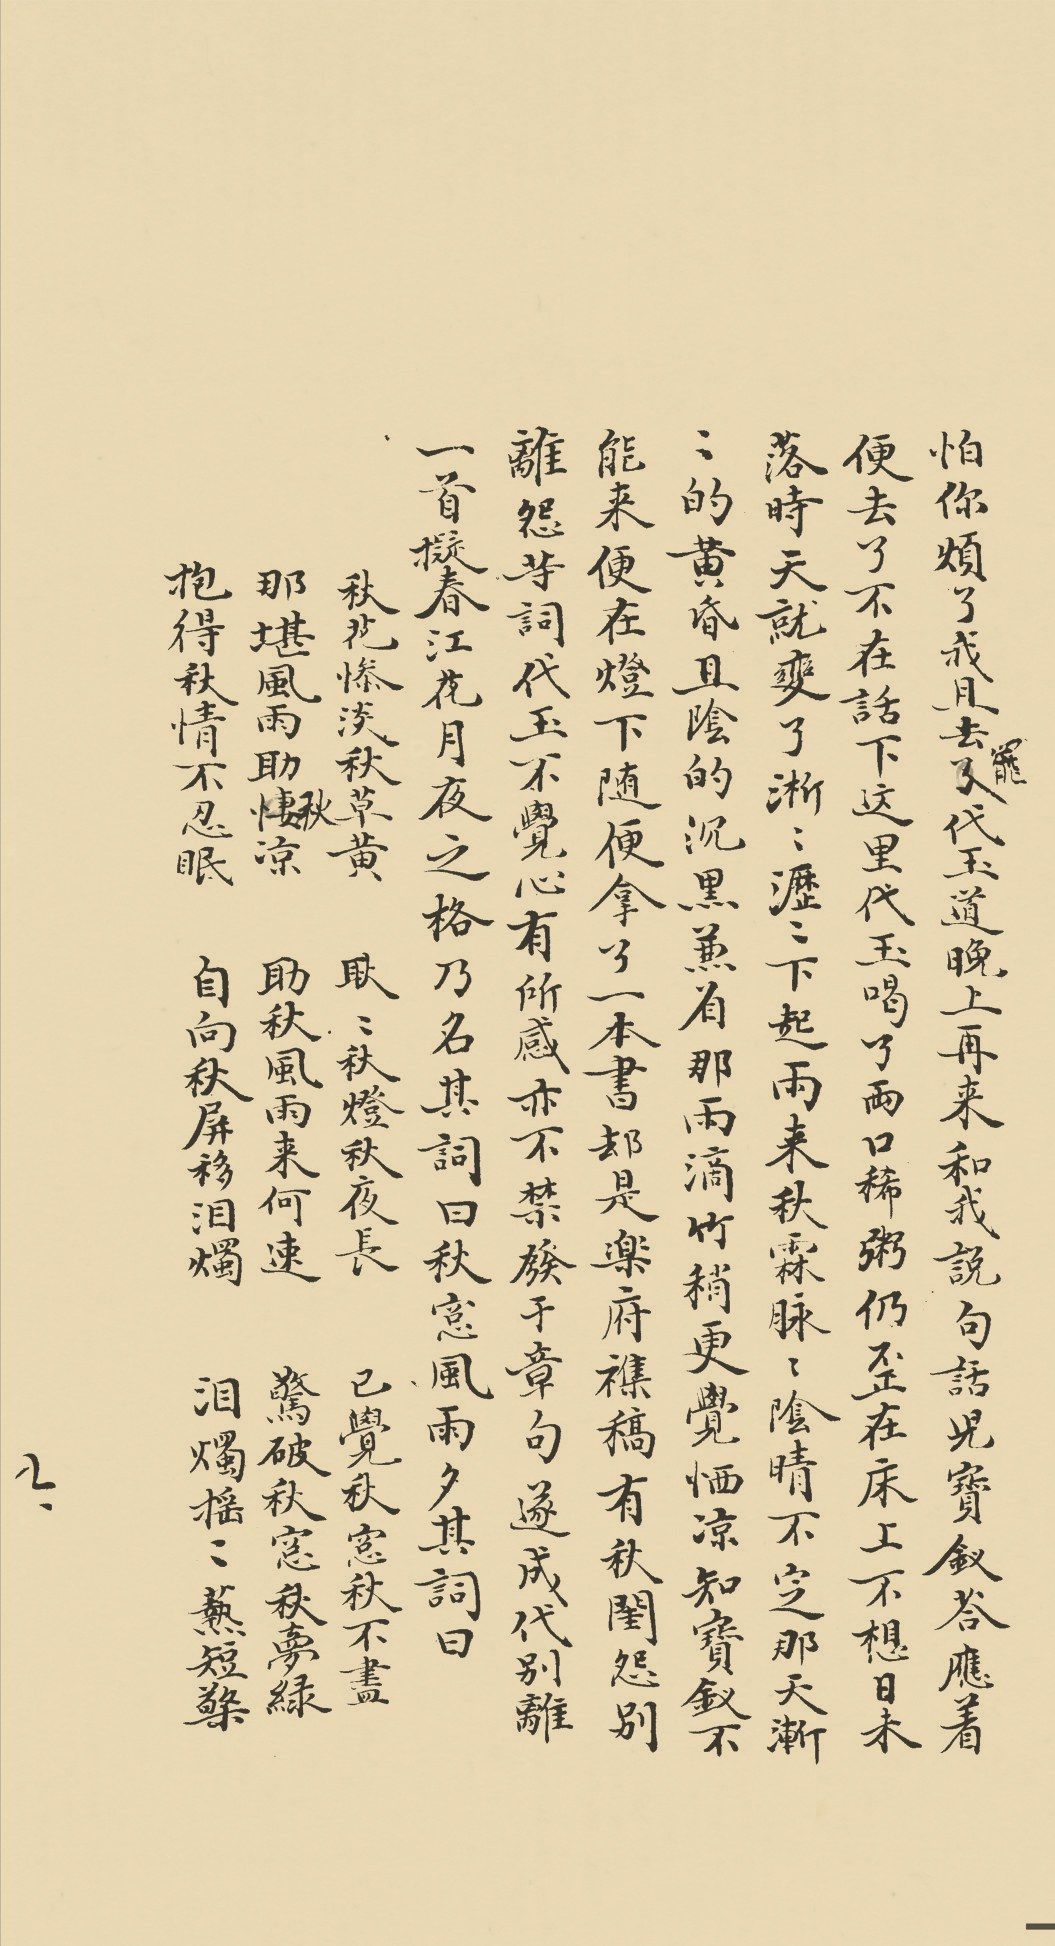 怕你煩了我且去了罷代玉道晚上再来和我説句話児寶釵荅應着
便去了不在話下这里代玉喝了兩口稀粥仍歪在床上不想日未
落時天就變了淅〻瀝〻下起雨来秋霖脉〻陰晴不定那天漸
〻的黄昏且陰的沉黒兼着那雨滴竹稍更覺恓凉知寶釵不
能来便在燈下随便拿了一本書却是楽府襍稿有秋閨怨别
離怨等詞代玉不覺心有所感亦不禁發于章句遂成代别離
一首擬春江花月夜之格乃名其詞曰秋窓風雨夕其詞曰
秋花惨淡秋草黄 耿〻秋燈秋夜長 已覺秋窓秋不盡
那堪風雨助秋凉 助秋風雨来何速 驚破秋窓秋夢緑
抱得秋情不忍眠 自向秋屏移泪燭 泪燭揺〻爇短檠